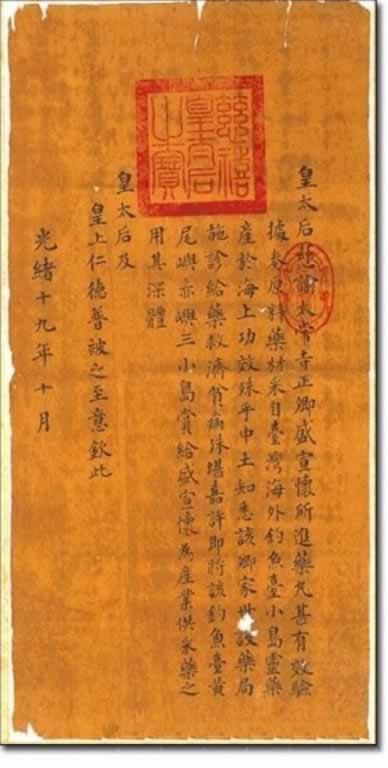 慈禧皇后之寶
皇太后慈諭太常寺正卿盛宣懷所進藥丸甚有效驗
據奏原料藥材采自臺灣海外釣魚臺小島靈藥
產於海上功效殊乎中土知悉該卿家世設藥局
施診給藥救濟貧病殊堪嘉許即將該釣魚臺黃
尾嶼赤嶼三小島賞給盛宣懷為產業供采藥之
用其深體
皇太后及
皇上仁德普被之至意欽此
光緒十九年十月